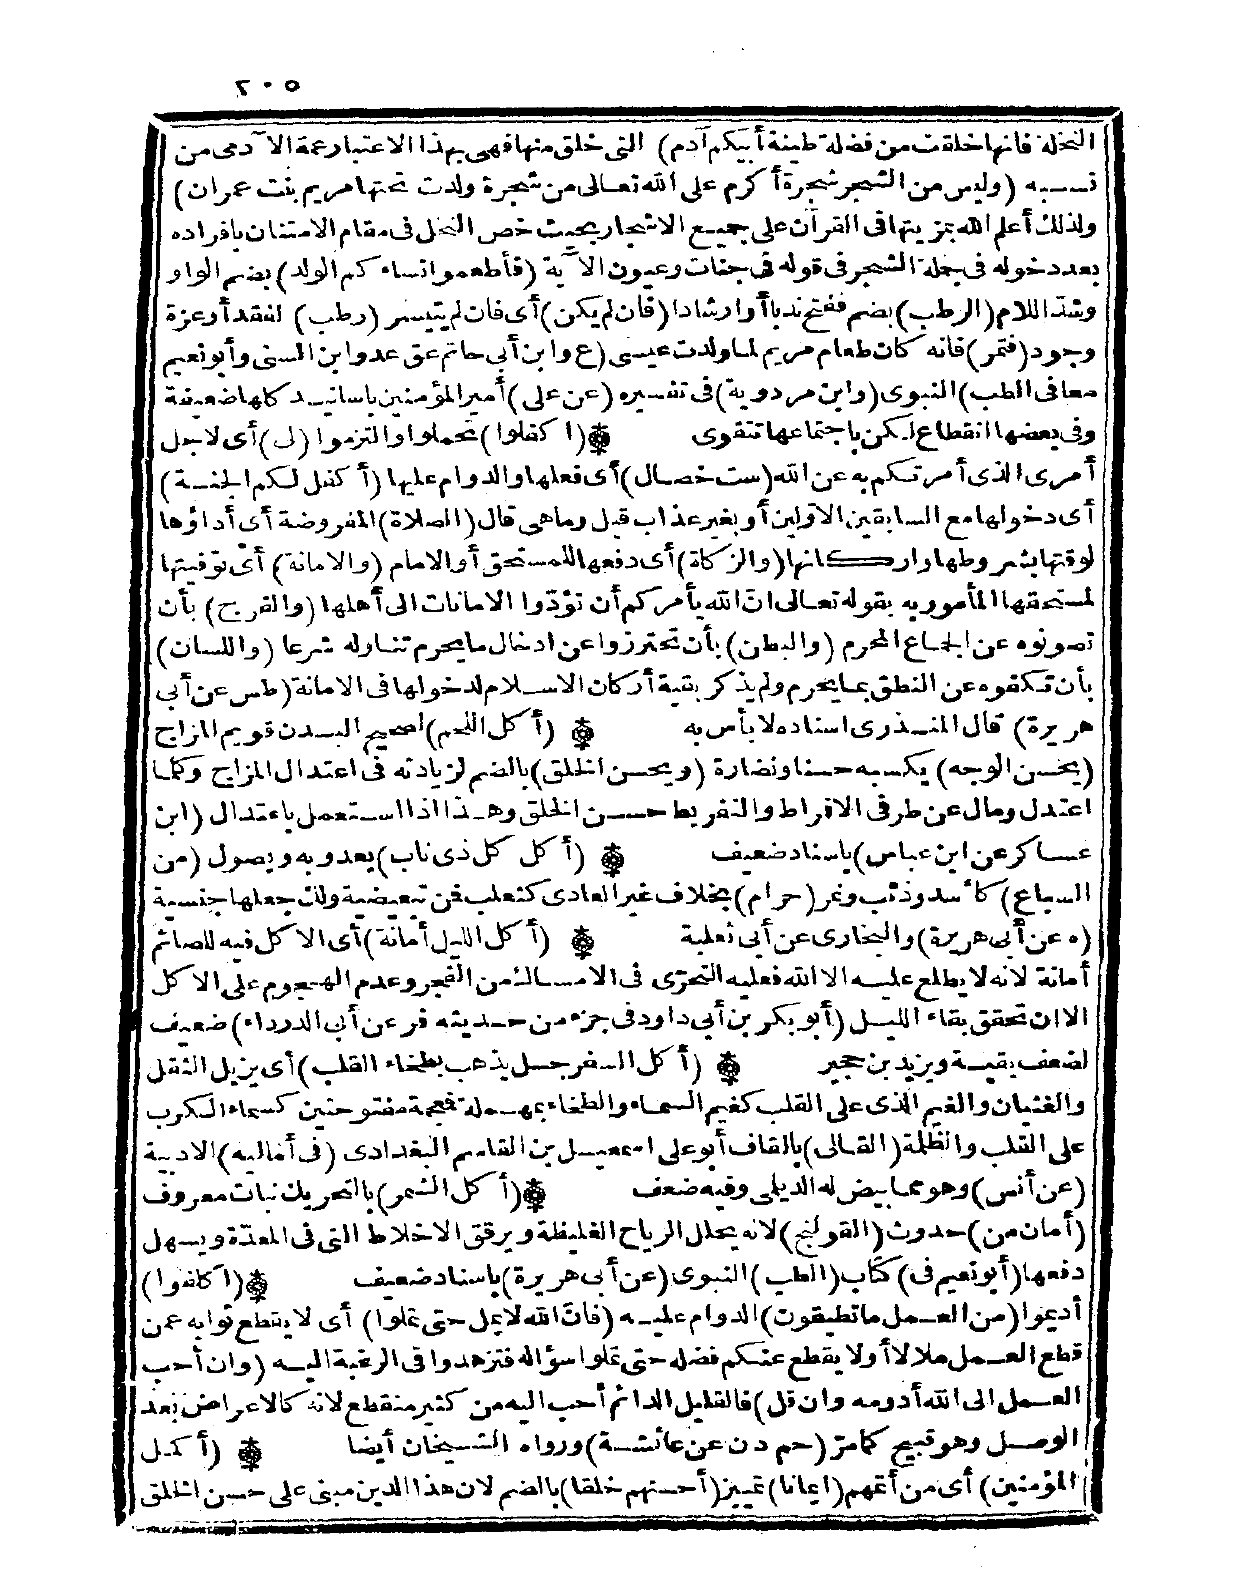 ٢٠٥
النخلة فانها خلقت من فضلة طينة أبيكم آدم) التي خلق منها فهي بهذا الاعتبار عمة الآدمى من
نسبه (وليس من الشجر شجرة أكرم على الله تعالى من شجرة ولدت تحتها مريم بنت عمران)
ولذلك أعلم الله بمزيتها فى القرآن على جميع الاشجار بحيث خص النخل فى مقام الامتنان بافراده
بعد دخوله فى جملة الشجر فى قوله فى جنات وعيون الآية (فأطعموا نساءكم الولد) بضم الواو
وشد اللام (الرطب) بضم ففتح ندبا أو ارشادا (فان لم يكن) أى فان لم يتيسر (رطب) لفقد أو عزة
وجود (فتمر) فانه كان طعام مريم لما ولدت عيسى (ع وابن أبى حاتم عق عد وابن السنى وأبو نعيم
معا فى الطب) النبوى (وابن مردوية) فى تفسيره (عن على) أمير المؤمنين باسانيد كلها ضعيفة
وفى بعضها انقطاع لكن باجتماعها تتقوى (اكفلوا) تحملوا والتزموا (لى) أى لاجل
أمرى الذى أمرتكم به عن الله (ست خصال) أى فعلها والدوام عليها (أكفل لكم الجنة)
أى دخولها مع السابقين الاولين أو بغير عذاب قيل وما هى قال (الصلاة) المفروضة أى أداؤها
لوقتها بشروطها واركانها (والزكاة) أى دفعها للمستحق أو الامام (والامانة) أى توفيتها
لمستحقها المأمور به بقوله تعالى ان الله يأمركم أن تؤدّوا الامانات الى أهلها (والفرج) بأن
تصونوه عن الجماع المحرم (والبطن) بأن تحترزوا عن ادخال ما يحرم تناوله شرعا (واللسان)
بأن تكفوه عن النطق بما يحرم ولم يذكر بقية أركان الاسلام لدخولها فى الامانة (طس عن أبى
هريرة) قال المنذرى اسناده لا بأس به (أكل اللحم) لصحيح البدن قويم المزاج
(يحسن الوجه) يكسبه حسنا ونضارة (ويحسن الخلق) بالضم لزيادته فى اعتدال المزاج وكلما
اعتدل ومال عن طرفى الافراط والتفريط حسن الخلق وهذا اذا استعمل باعتدال (ابن
عساكر عن ابن عباس) باسناد ضعيف (أكل كل ذى ناب) يعدو به ويصول (من
السباع) كأسد وذئب ونمر (حرام) بخلاف غير العادى كثعلب فمن تبعيضية ولك جعلها جنسية
(ه عن أبى هريرة) والبخارى عن أبى ثعلبة (أكل الليل أمانة) أى الاكل فيه للصائم
أمانة لانه لا يطلع عليه الا الله فعليه التحرّى فى الامساك من الفجر وعدم الهجوم على الاكل
الا ان تحقق بقاء الليل (أبو بكر بن أبى داود فى جزء من حديثه فر عن أبى الدرداء) ضعيف
لضعف بقية ويزيد بن حجير (أكل السفرجل يذهب بطخاء القلب) أى يزيل الثقل
والغثيان والغيم الذى على القلب كغيم السماء والطخاء بمهملة فمعجمة مفتوحتين كسماء الكرب
على القلب والظلمة (القالى) بالقاف أبو على اسمعيل بن القاسم البغدادى (فى أماليه) الادبية
(عن أنس) وهو مما بيض له الديلى وفيه ضعف (أكل الشمر) بالتحريك نبات معروف
(أمان من) حدوث (القولنج) لانه يحلل الرياح الغليظة ويرقق الاخلاط التى فى المعدة ويسهل
دفعها (أبو نعيم فى) كتاب (الطب) النبوى (عن أبى هريرة) باسناد ضعيف (اكلفوا)
أديموا (من العمل ما تطيقون) الدوام عليه (فانّ الله لا يمل حتى تملوا) أى لا يقطع ثوابه عمن
قطع العمل ملالا أو لا يقطع عنكم فضله حتى تملوا سؤاله فتزهدوا فى الرغبة اليه (وان أحب
العمل الى الله أدومه وان قل) فالقليل الدائم أحب اليه من كثير منقطع لانه كالاعراض بعد
الوصل وهو قبيح كما مرّ (حم د ن عن عائشة) ورواه الشيخان أيضا (أكمل
المؤمنين) أى من أتمهم (ايمانا) تمييز (أحسنهم خلقا) بالضم لان هذا الدين مبنى على حسن الخلق